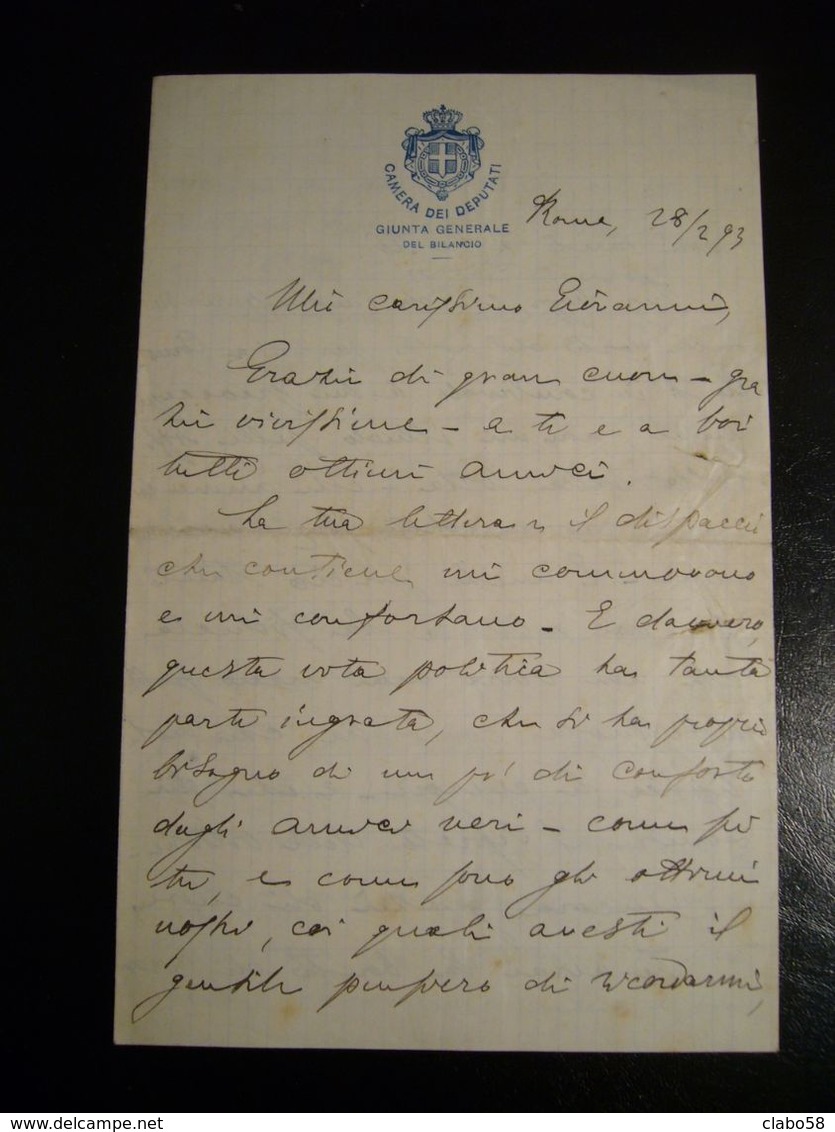 CAMERA DEI DEPUTATI
GIUNTA GENERALE
DEL BILANCIO
Roma, 28/2 93
Mio carissimo Giovanni,
Grazie di gran cuore – gra
zie vivissime – a te e a voi
tutti ottimi amici.
La tua lettera e il dispaccio
che contiene mi commovono
e mi confortano – E davvero,
questa vita politica ha tanta
parte ingrata, che si ha proprio
bisogno di un po' di conforto
dagli amici veri – come sei
tu, e come sono gli ottimi
nostri, coi quali avesti il
gentile pensiero di ricordarmi,
www.delcampe.net
clabo58